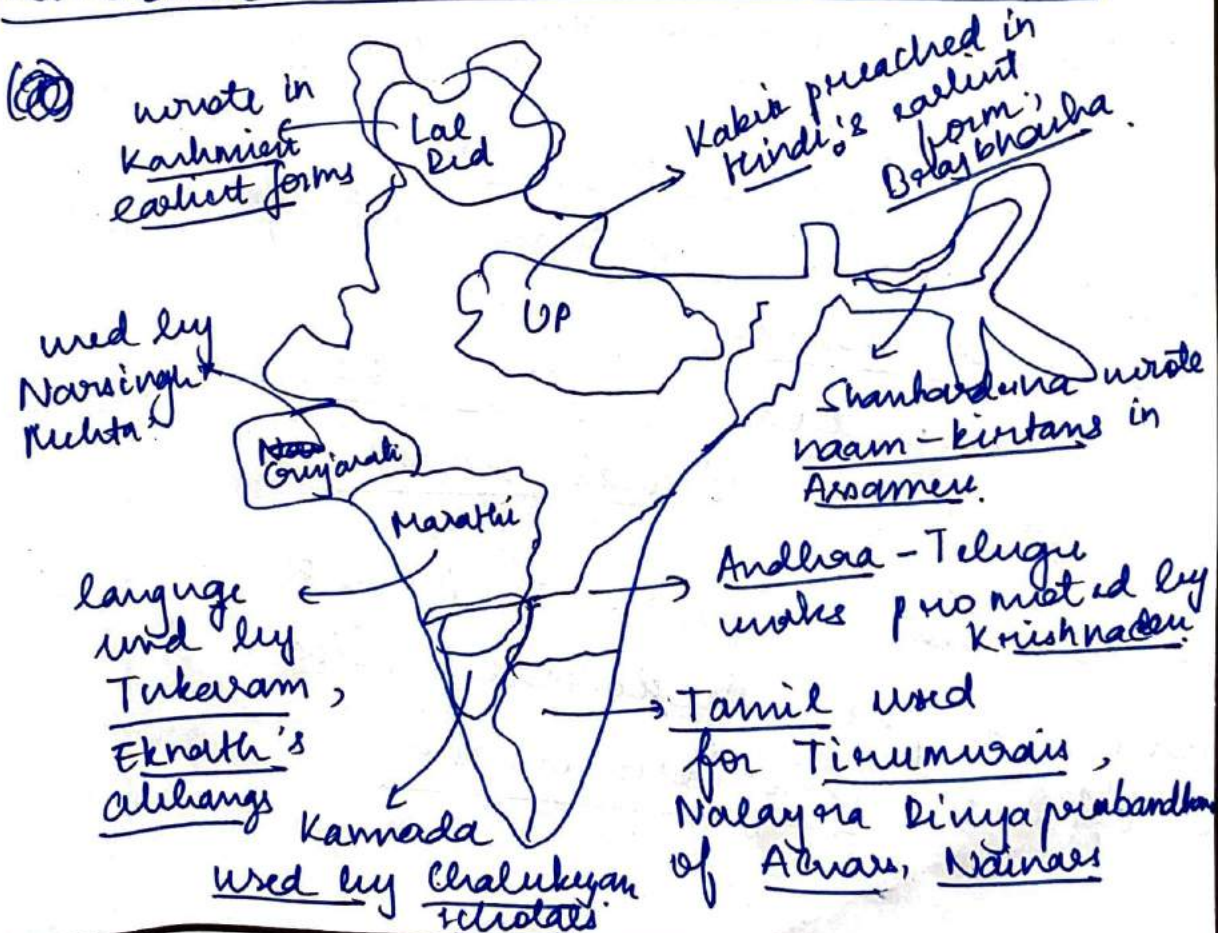 (a)
wrote in
Kashmiri
earliest forms
Lal
Ded
Kabir preached in
Hindi's earliest
form;
Brajbhasha.
UP
used by
Narsingh
Mehta.
Gujarati
Marathi
Shankardeva wrote
naam-kirtans in
Assamese.
languge
used by
Tukaram,
Eknath's
abhangs
Andhra - Telugu
works promoted by
Krishnadev.
Kannada
used by Chalukyan
scholars.
Tamil used
for Tirumurais,
Nalayra Divyaprabandham
of Alvars, Nainars